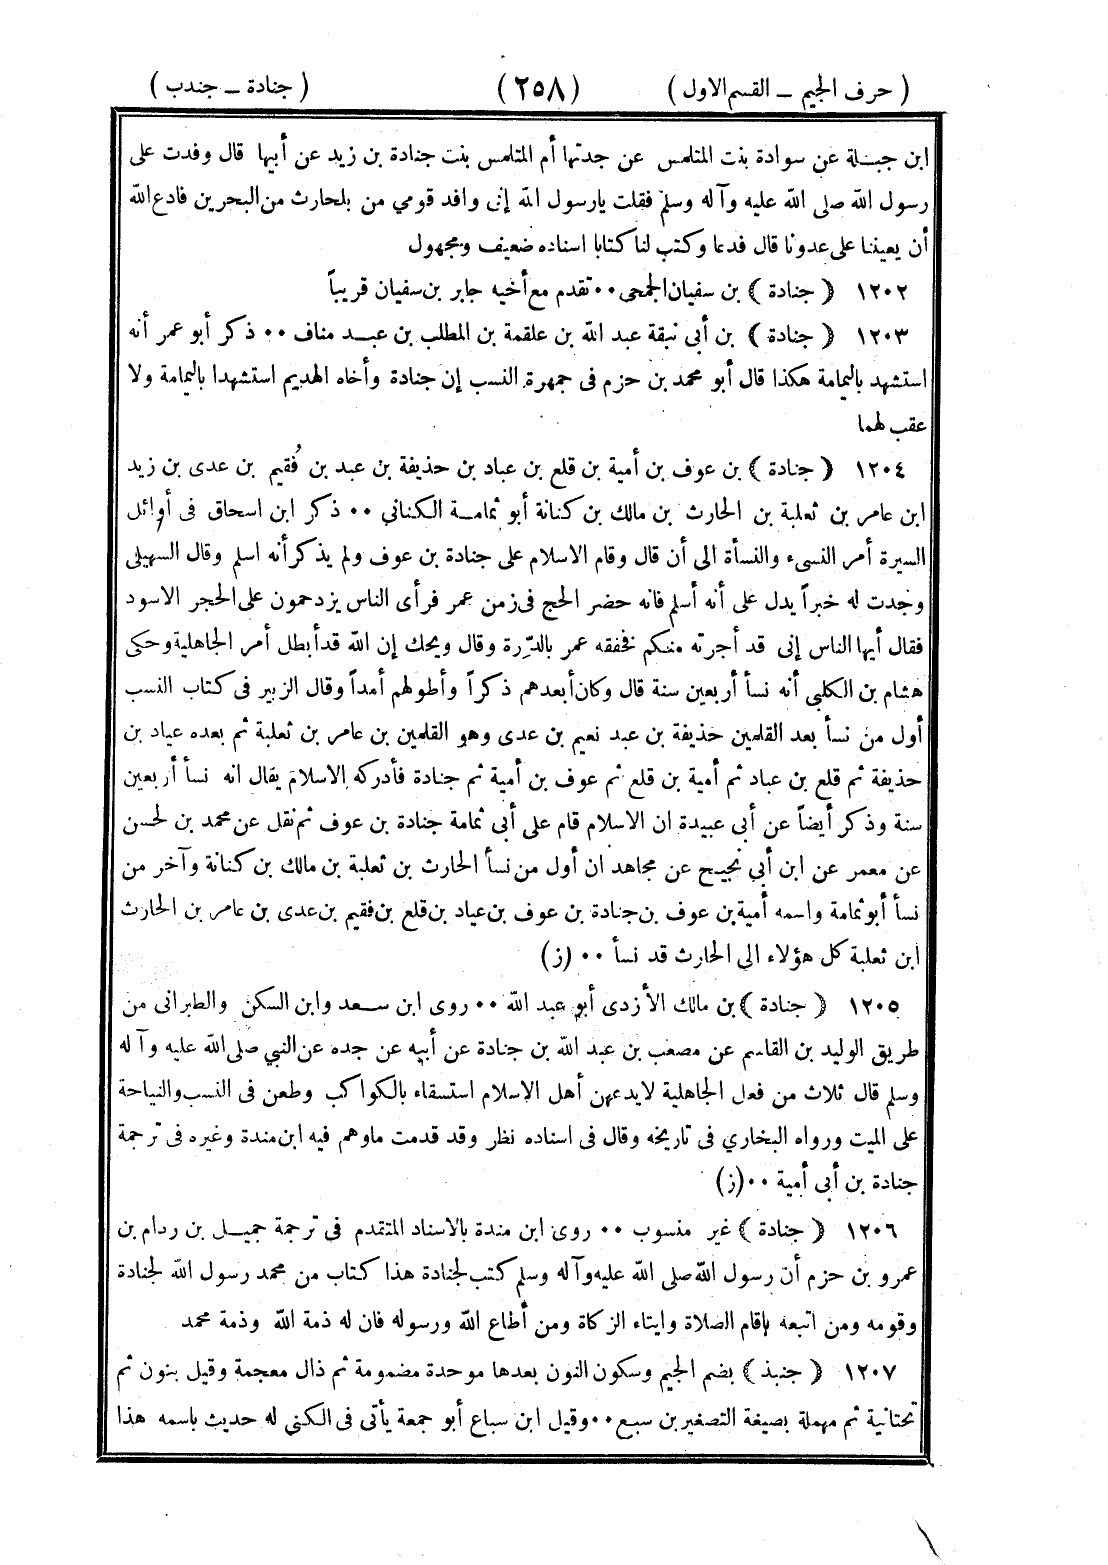 ( حرف الجيم – القسم الاول )
( ٢٥٨ )
( جنادة – جندب )
ابن جبلة عن سوادة بنت المتلمس عن جدتها أم المتلمس بنت جنادة بن زيد عن أبيها قال وفدت على
رسول الله صلى الله عليه وآله وسلم فقلت يارسول الله إنى وافد قومي من بلحارث من البحرين فادع الله
أن يعيننا على عدونا قال فدعا وكتب لنا كتابا اسناده ضعيف ومجهول
١٢٠٢ ( جنادة ) بن سفيان الجمحى ٠٠ تقدم مع أخيه جابر بن سفيان قريباً
١٢٠٣ ( جنادة ) بن أبى نبقة عبد الله بن علقمة بن المطلب بن عبد مناف ٠٠ ذكر أبو عمر أنه
استشهد باليمامة هكذا قال أبو محمد بن حزم فى جمهرة النسب إن جنادة وأخاه الهديم استشهدا باليمامة ولا
عقب لهما
١٢٠٤ ( جنادة ) بن عوف بن أمية بن قلع بن عباد بن حذيفة بن عبد بن فُقيم بن عدى بن زيد
ابن عامر بن ثعلبة بن الحارث بن مالك بن كنانة أبو ثمامة الكناني ٠٠ ذكر ابن اسحاق فى أوائل
السيرة أمر النسىء والنسأة الى أن قال وقام الاسلام على جنادة بن عوف ولم يذكر أنه اسلم وقال السهيلى
وجدت له خبراً يدل على أنه أسلم فانه حضر الحج فى زمن عمر فرأى الناس يزدحمون على الحجر الاسود
فقال أيها الناس إنى قد أجرته منكم فخفقه عمر بالدِّرة وقال ويحك إن الله قد أبطل أمر الجاهلية وحكى
هشام بن الكلبى أنه نسأ أربعين سنة قال وكان أبعدهم ذكراً وأطولهم أمداً وقال الزبير فى كتاب النسب
أول من نسأ بعد القلمين حذيفة بن عبد نعيم بن عدى وهو القلمين بن عامر بن ثعلبة ثم بعده عياد بن
حذيفة ثم قلع بن عباد ثم أمية بن قلع ثم عوف بن أمية ثم جنادة فأدركه الاسلام يقال انه نسأ أربعين
سنة وذكر أيضاً عن أبى عبيدة ان الاسلام قام على أبى ثمامة جنادة بن عوف ثم نقل عن محمد بن لحسن
عن معمر عن ابن أبي نجيح عن مجاهد ان أول من نسأ الحارث بن ثعلبة بن مالك بن كنانة وآخر من
نسأ أبو ثمامة واسمه أمية بن عوف بن جنادة بن عوف بن عياد بن قلع بن فقيم بن عدى بن عامر بن الحارث
ابن ثعلبة كل هؤلاء الى الحارث قد نسأ ٠٠ (ز)
١٢٠٥ ( جنادة ) بن مالك الأزدى أبو عبد الله ٠٠ روى ابن سعد وابن السكن والطبرانى من
طريق الوليد بن القاسم عن مصعب بن عبد الله بن جنادة عن أبيه عن جده عن النبي صلى الله عليه وآله
وسلم قال ثلاث من فعل الجاهلية لايدعهن أهل الاسلام استسقاء بالكواكب وطعن فى النسب والنياحة
على الميت ورواه البخاري فى تاريخه وقال فى اسناده نظر وقد قدمت ماوهم فيه ابن مندة وغيره فى ترجمة
جنادة بن أبى أمية ٠٠ (ز)
١٢٠٦ ( جنادة ) غير منسوب ٠٠ روى ابن مندة بالاسناد المتقدم فى ترجمة جميل بن ردام بن
عمرو بن حزم أن رسول الله صلى الله عليه وآله وسلم كتب لجنادة هذا كتاب من محمد رسول الله لجنادة
وقومه ومن اتبعه بإقام الصلاة وايتاء الزكاة ومن أطاع الله ورسوله فان له ذمة الله وذمة محمد
١٢٠٧ ( جنبذ ) بضم الجيم وسكون النون بعدها موحدة مضمومة ثم ذال معجمة وقيل بنون ثم
تحتانية ثم مهملة بصيغة التصغير بن سبع ٠٠ وقيل ابن سباع أبو جمعة يأتى فى الكنى له حديث باسمه هذا